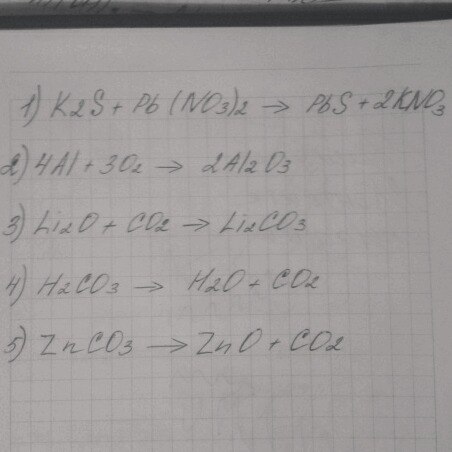 1) K2S + Pb (NO3)2 → PbS + 2KNO3
2) 4Al + 3O2 → 2Al2O3
3) Li2O + CO2 → Li2CO3
4) H2CO3 → H2O + CO2
5) ZnCO3 → ZnO + CO2